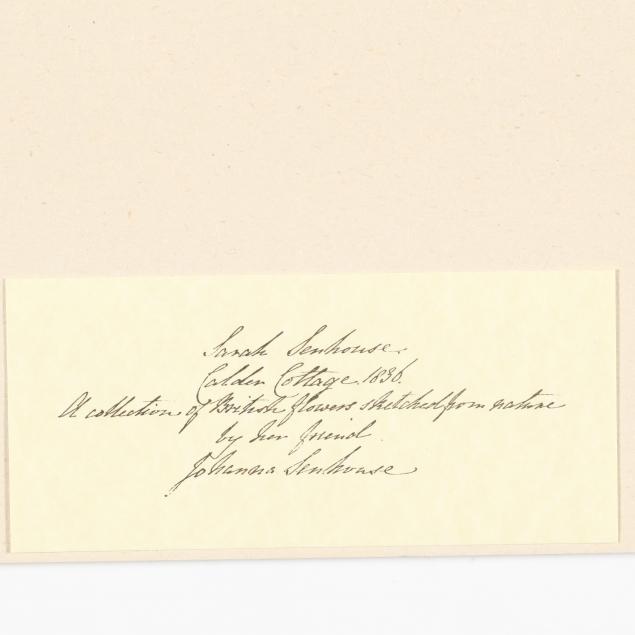 Sarah Senhouse.
Calder Cottage. 1836.
A collection of British flowers sketched from nature
by her friend
Johanna Senhouse